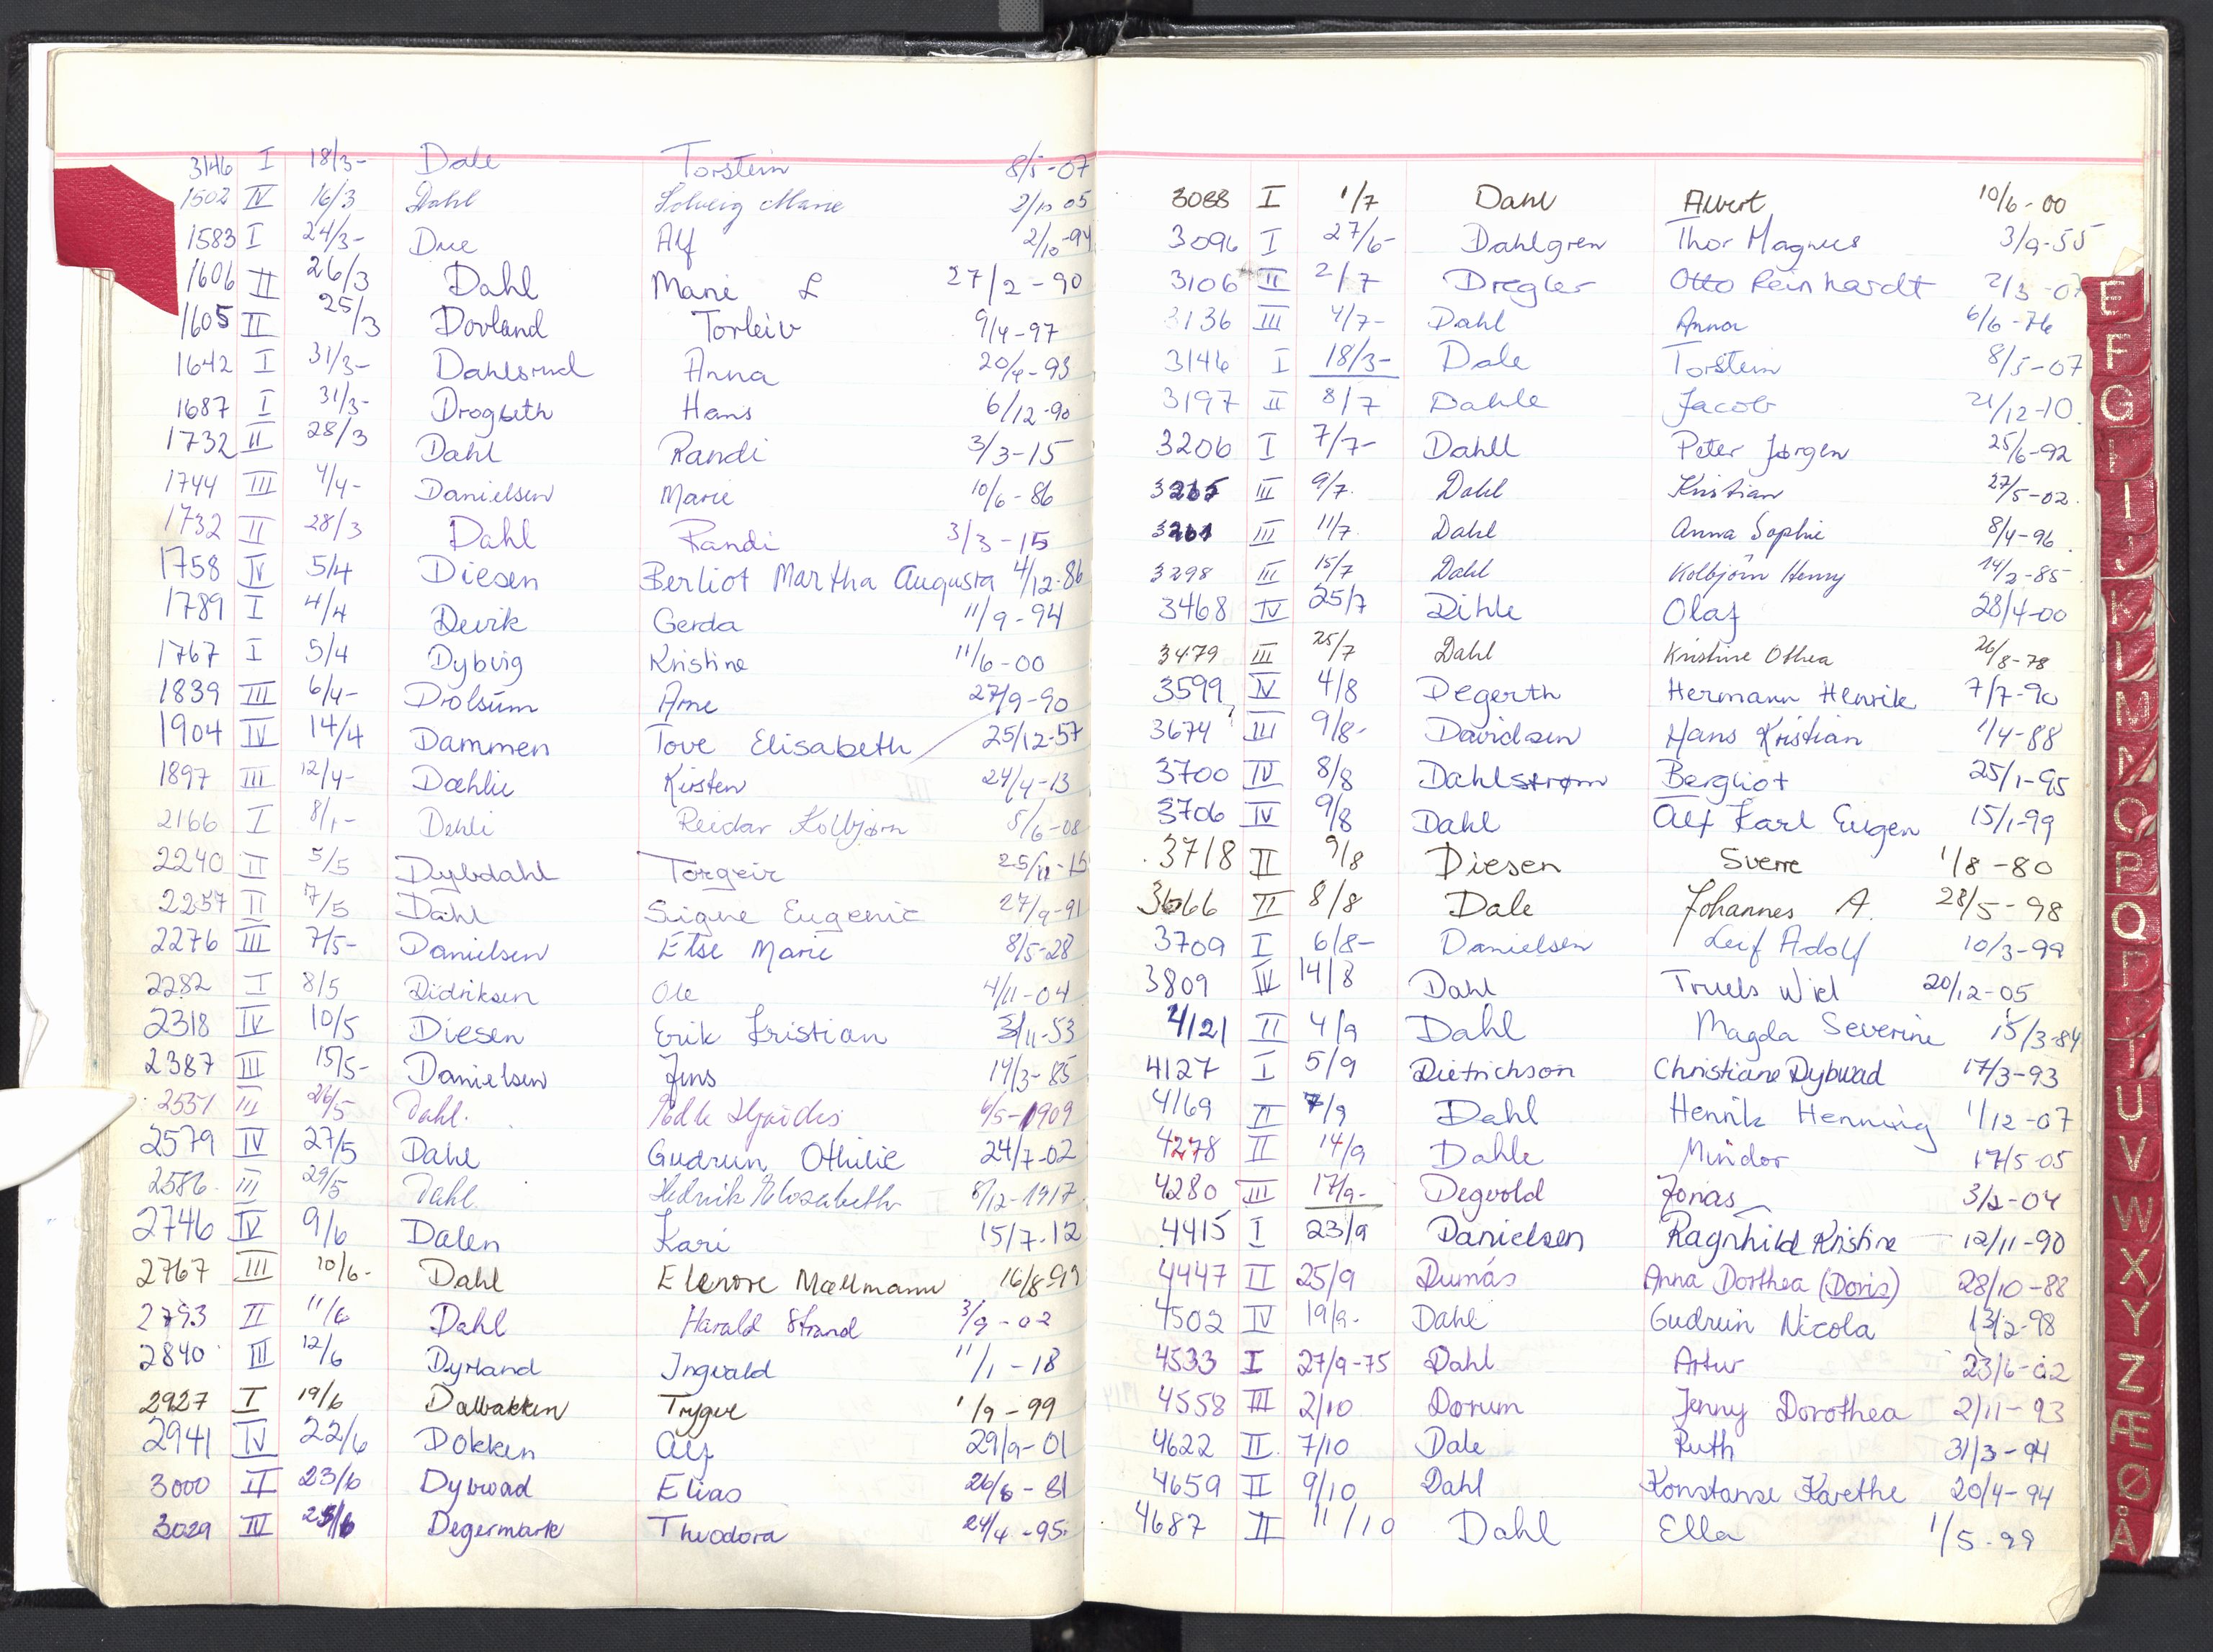 3146 I 18/3- Dale Torstein 8/5-07
1502 IV 16/3 Dahl Solveig Marie 2/10 05
1583 I 24/3- Due Alf 2/10-94
1606 II 26/3 Dahl Marie L 27/2-90
1605 II 25/3 Dovland Torleiv 9/4-97
1642 I 31/3- Dahlsrud Anna 20/9-93
1687 I 31/3- Drogseth Hans 6/12-90
1732 II 28/3 Dahl Randi 3/3-15
1744 III 4/4- Danielsen Marie 10/6-86
1732 II 28/3 Dahl Randi 3/3-15
1758 IV 5/4 Diesen Berliot Martha Augusta 4/12-86
1789 I 4/4 Devik Gerda 11/9-94
1767 I 5/4 Dybvig Kristine 11/6-00
1839 III 6/4- Drolsum Arne 27/9-90
1904 IV 14/4 Dammen Tove Elisabeth 25/12-57
1897 III 12/4- Dæhlie Kirsten 24/4-13
2166 I 8/1- Dehli Reidar Kolbjørn 5/6-08
2240 II 5/5 Dybdahl Torgeir 25/11-15
2257 II 7/5 Dahl Signe Eugenie 27/9-91
2276 III 7/5- Danielsen Else Marie 8/5-28
2282 I 8/5 Didriksen Ole 4/11-04
2318 IV 10/5 Diesen Erik Kristian 3/11-53
2387 III 15/5- Danielsen Jens 14/3-85
2551 III 26/5 Dahl. Hjørdis 6/5-1909
2579 IV 27/5 Dahl Gudrun Othilie 24/7-02
2586. III 29/5 Dahl. Elisabeth 8/12-1917
2746 IV 9/6 Dalen Kari 15/7.12
2767 III 10/6- Dahl Elenore Mællmann 16/8-99
2793 II 11/6 Dahl Harald Strand 3/9-02
2840 III 12/6 Dyrland Ingvald 11/1-18
2927 I 19/6 Dalbakken Trygve 1/9-99
2941 IV 22/6 Dokken Alf 29/9-01
3000 II 23/6 Dybwad Elias 26/6-81
3029 IV 25/6 Degermark Theodora 24/4-95
3088 I 1/7 Dahl Albert 10/6-00
3096 I 27/6- Dahlgren Thor Magnus 3/9-55
3106 II 2/7 Dregler Otto Reinhardt 2/3-07
3136 III 4/7- Dahl Anna 6/6-76
3146 I 18/3- Dale Torstein 8/5-07
3197 II 8/7 Dahle Jacob 21/12-10
3206 I 7/7- Dahll Peter Jørgen 25/6-92
3265 III 9/7. Dahl Kristian 27/5-02.
3261 III 11/7 Dahl Anna Sophie 8/4-96
3298 III 15/7 Dahl Kolbjørn Henry 14/2-85
3468 IV 25/7 Dihle Olaf 28/4-00
3479 III 25/7 Dahl Kristine Othea 26/8-78
3599 IV 4/8 Degerth Hermann Henrik 7/7-90
3674 III 9/8- Davidsen Hans Kristian 1/4-88
3700 IV 8/8 Dahlstrøm Bergliot 25/1-95
3706 IV 9/8 Dahl Alf Karl Eugen 15/1-99
3718 II 9/8 Diesen Sverre 1/8-80
3666 II 8/8 Dale Johannes A. 28/5-98
3709 I 6/8- Danielsen Leif Adolf 10/3-99
3809 IV 14/8 Dahl Truels Wiel 20/12-05
4121 II 4/9 Dahl Magda Severine 15/3-84
4127 I 5/9 Dietrichson Christiane Dybwad 17/3-93
4169 II 7/9 Dahl Henrik Henning 1/12-07
4278 II 14/9 Dahle Mindor 17/5-05
4280 III 17/9- Degvold Jonas 3/2-04
4415 I 23/9 Danielsen Ragnhild Kristine 12/11-90
4447 II 25/9 Dumás Anna Dorthea (Doris) 28/10-88
4502 IV 19/9. Dahl Gudrun Nicola 13/2-98
4533 I 27/9-75 Dahl Artur 23/6-02
4558 III 2/10 Dorum Jenny Dorothea 2/11-93
4622 II 7/10 Dale Ruth 31/3-94
4659 II 9/10 Dahl Konstanse Karethe 20/4-94
4687 II 11/10 Dahl Ella 1/5-99
E
F
G
I
J
K
L
M
N
O
P
Q
R
T
U
V
W
X
Y
Z
Æ
Ø
Å